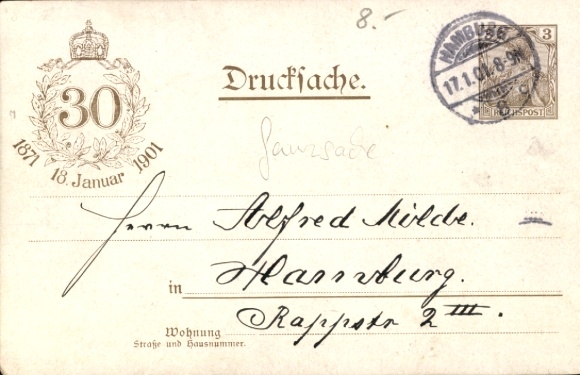 8.-
HAMBURG
17.1.01. 8-9N
3
REICHSPOST
30
1871 18. Januar 1901
Druckſache.
Ganzsache
Herrn Alfred Milde.
in Hamburg.
Rappstr 2 III.
Wohnung
Straße und Hausnummer.